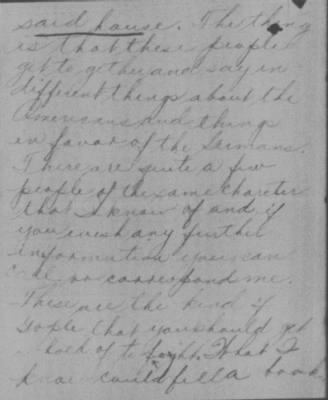 said house. The thing
is that these people
get to gether and say in-
different things about the
Americans and things
in favor of the Germans.
There are quite a few
people of the same charcter
that I know of and if
you wish any further
information you can
call or correspond me.
These are the kind if
people that you should get
hold of to fight. What I
know could fill a book